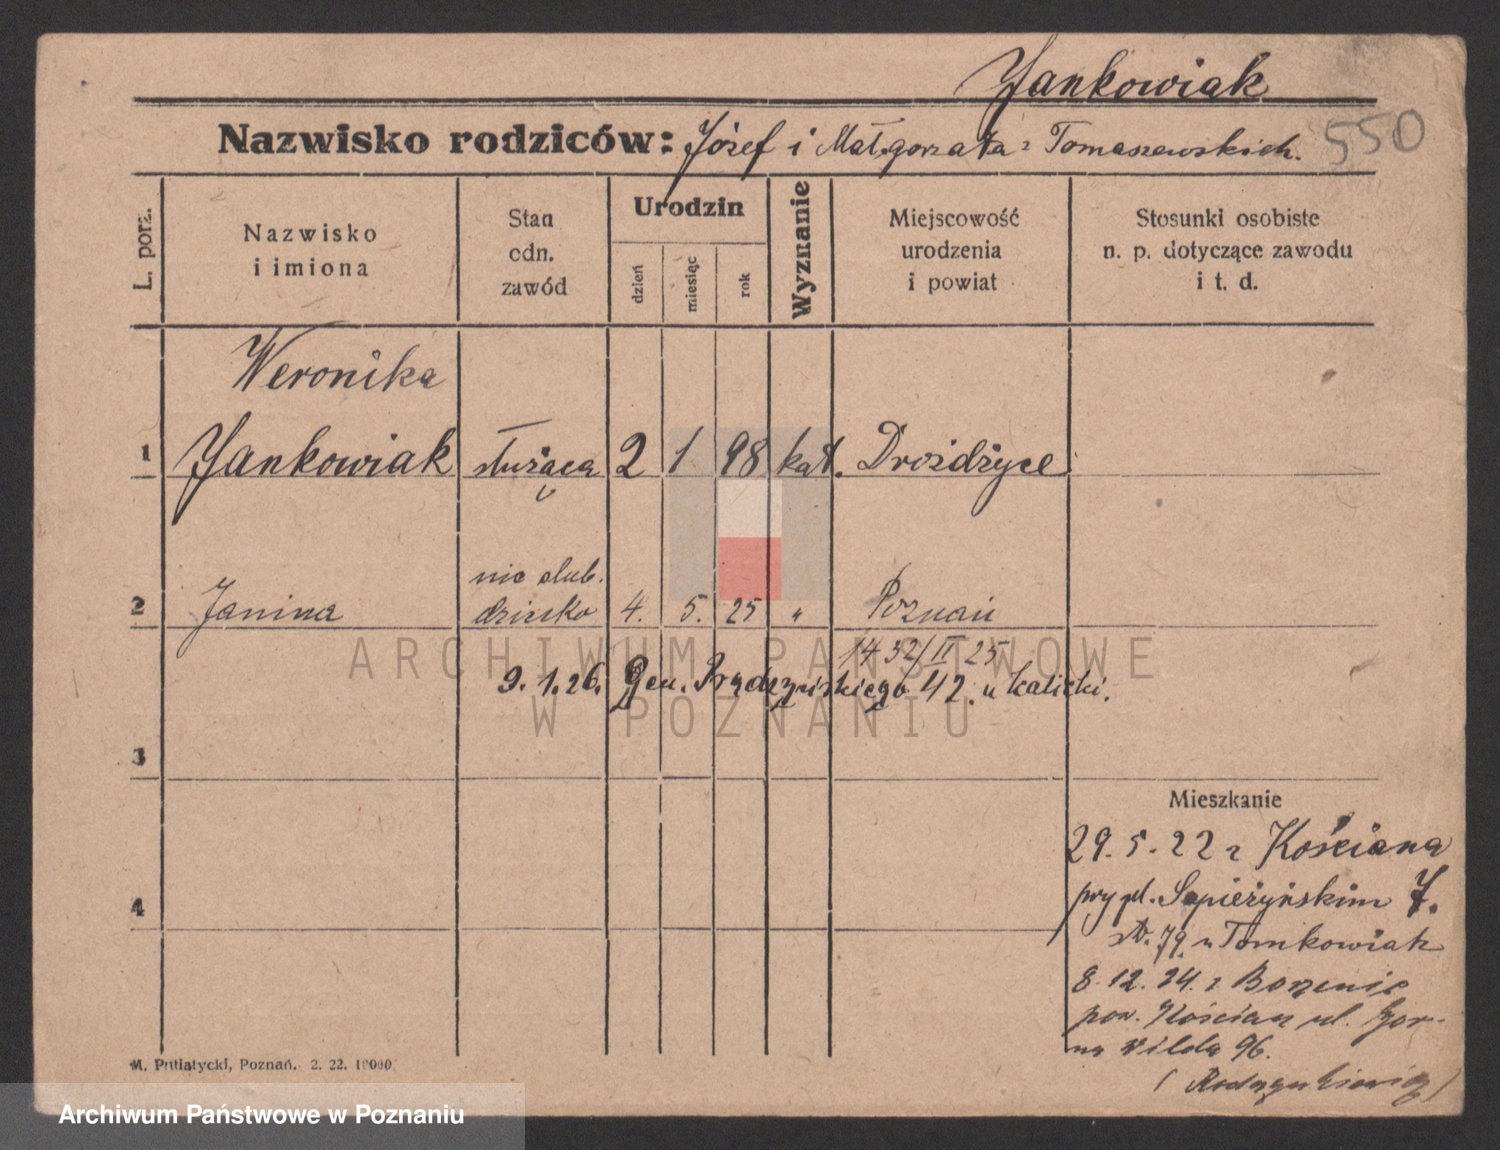 Jankowiak
Nazwisko rodziców: Józef i Małgorzata z Tomaszewskich.
550
L. porz.
Nazwisko
i imiona
Stan
odn.
zawód
Urodzin
dzień
miesiąc
rok
Wyznanie
Miejscowość
urodzenia
i powiat
Stosunki osobiste
n. p. dotyczące zawodu
i t. d.
Weronika
1 Jankowiak służąca 2 1 98 kat. Drożdżyce
nie ślub.
2 Janina dziecko 4. 5. 25 " Poznań
1432/II 25
9.1.26. Gen. Prądzyńskiego 42. u Kalicki.
3
4
Mieszkanie
29.5.22 z Kościana
przy pl. Sapieżyńskim 7.
str. 79 u Tomkowiak
8.12.24. z
pow. Kościan ul. Gór-
na Wilda 96.
ARCHIWUM PAŃSTWOWE
W POZNANIU
M. Putiatycki, Poznań. 2. 22. 10000
Archiwum Państwowe w Poznaniu